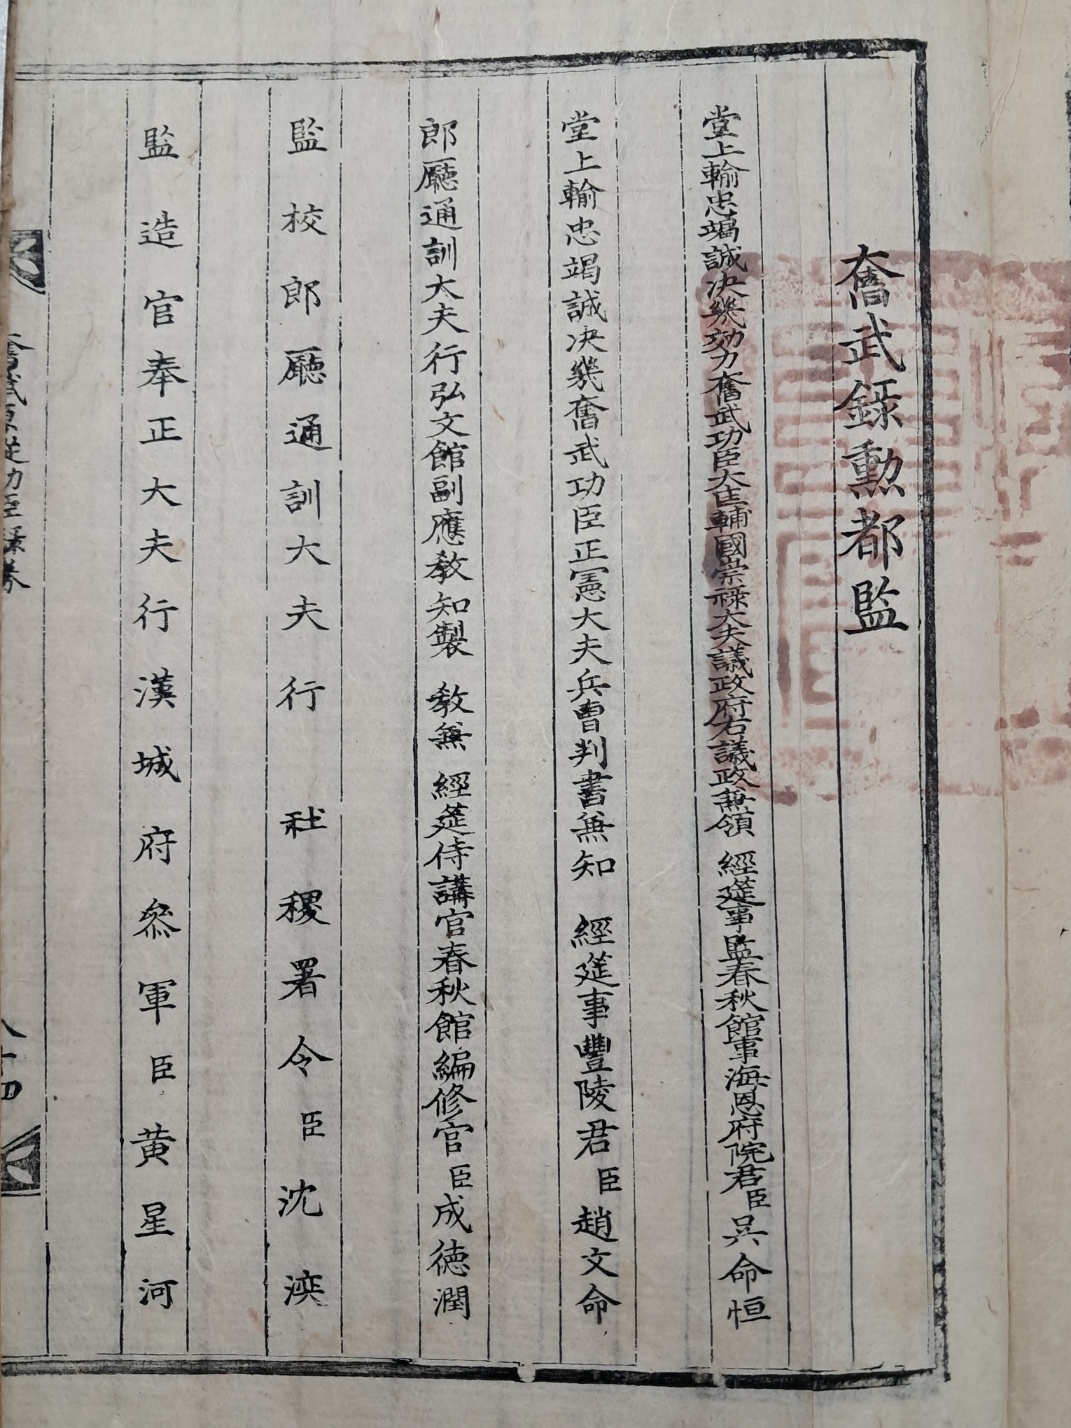 奮武錄勳都監
堂上輸忠竭誠決幾効力奮武功臣大匡輔國崇祿大夫議政府右議政兼領 經筵事監春秋館事海恩府院君臣吳命恒
堂上輸忠竭誠決幾奮武功臣正憲大夫兵曹判書兼知 經筵事豐陵君臣趙文命
郎廳通訓大夫行弘文館副應敎知製 敎兼 經筵侍講官春秋館編修官臣成德潤
監校郎廳通訓大夫行 社稷署令臣沈湙
監造官奉正大夫行漢城府叅軍臣黃星河
奮武原從功臣錄券
八十四